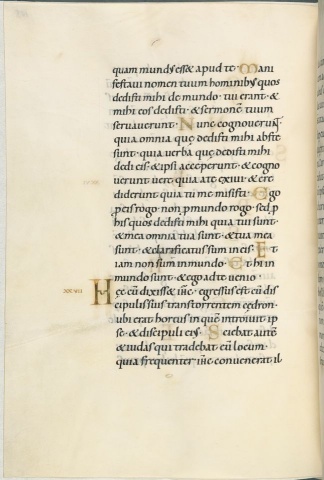 quam mundus eēt apud te · Mani
festavi nomen tuum hominibus quos
dedisti mihi de mundo · tui erant · &
mihi eos dedisti · & sermonē tuum
servaverunt · Nunc cognoverunt
quia omnia quę dedisti mihi abs te
sunt · quia verba quę dedisti mihi
dedi eis · & ipsi acceperunt · & cogno
verunt vere quia a te exivi · & cre
diderunt quia tu me misisti · Ego
p eis rogo · non p mundo rogo · sed p
his quos dedisti mihi quia tui sunt ·
& mea omnia tua sunt · & tua mea
sunt · & clarificatus sum in eis · Et
iam non sum in mundo · Et hi in
mundo sunt · & ego ad te venio ·
Hęc cū dixisset ihc · egressus est cū dis
cipulis suis trans torrentem cędron ·
ubi erat hortus in quē introivit ip
se · & discipuli eius · Sciebat autē
& iudas qui tradebat eū locum ·
quia frequenter ihc convenerat il